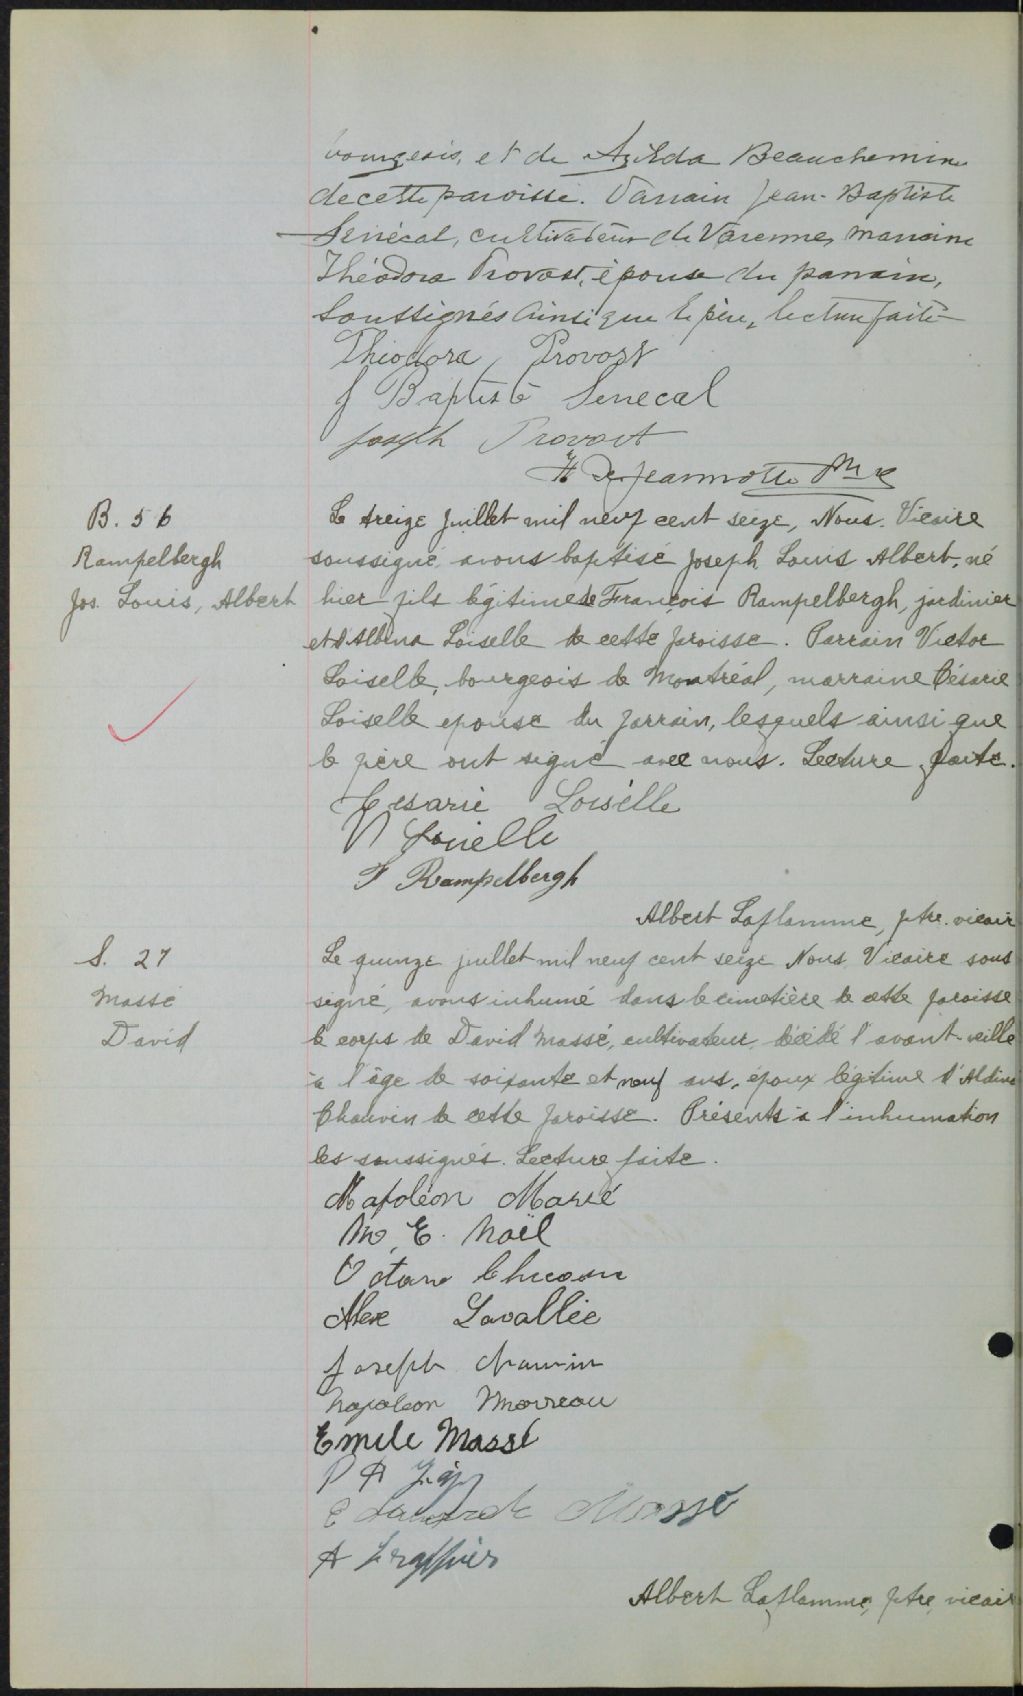 bourgeois, et de Azilda Beauchemin
de cette paroisse. Parrain Jean-Baptiste
Senécal, cultivateur de Varennes, marraine
Théodora Provost, épouse du parrain,
soussignés ainsi que le père, lecture faite
Théodora Provost
J Baptiste Senecal
Joseph Provost
H Jeannotte Ptre
B. 56
Rampelbergh
Jos. Louis, Albert
Le treize juillet mil neuf cent seize, Nous. Vicaire
soussigné avons baptisé Joseph Louis Albert, né
hier fils légitime de François Rampelbergh, jardinier
et d'Albina Loiselle de cette paroisse. Parrain Victor
Loiselle, bourgeois de Montréal, marraine Césarie
Loiselle epouse du parrain, lesquels ainsi que
le père ont signé avec nous. Lecture faite.
Cesarie Loiselle
V Loiselle
F Rampelbergh
Albert Laflamme, ptre. vicair
S. 27
Massé
David
Le quinze juillet mil neuf cent seize Nous Vicaire sous
signé, avons inhumé dans le cimetière de cette paroisse
le corps de David Massé, cultivateur, décédé l'avant-veille
à l'âge de soixante et neuf ans, époux légitime d'Aldina
Chauvin de cette paroisse. Présents à l'inhumation
les soussignés. Lecture faite.
Napoléon Massé
M. E. Noël
Alex Lavallée
Joseph Chauvin
Napoleon Morreau
Emile Massé
P A
Edouard Massé
A
Albert Laflamme, ptre, vicair